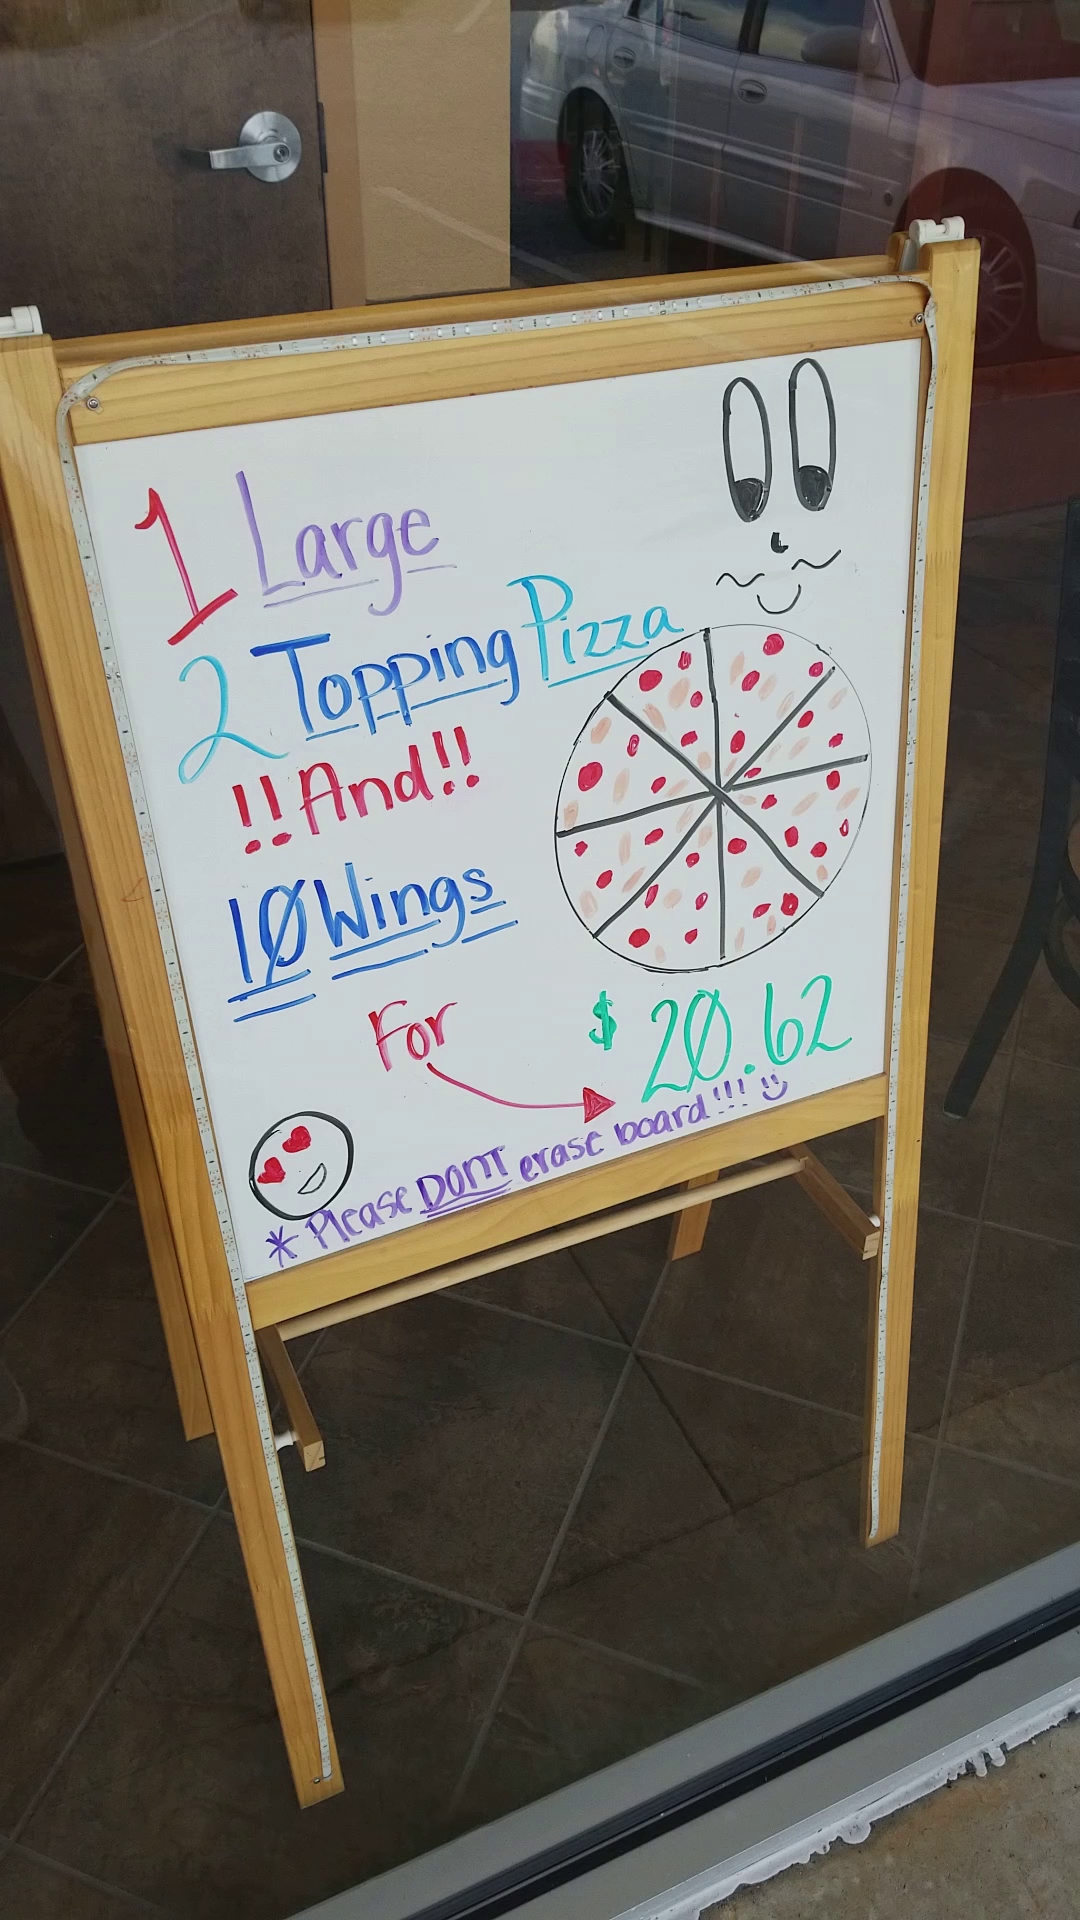 1 Large
2 Topping Pizza
!!And!!
10 Wings
For
$20.62
* Please DONT erase board!!! :)